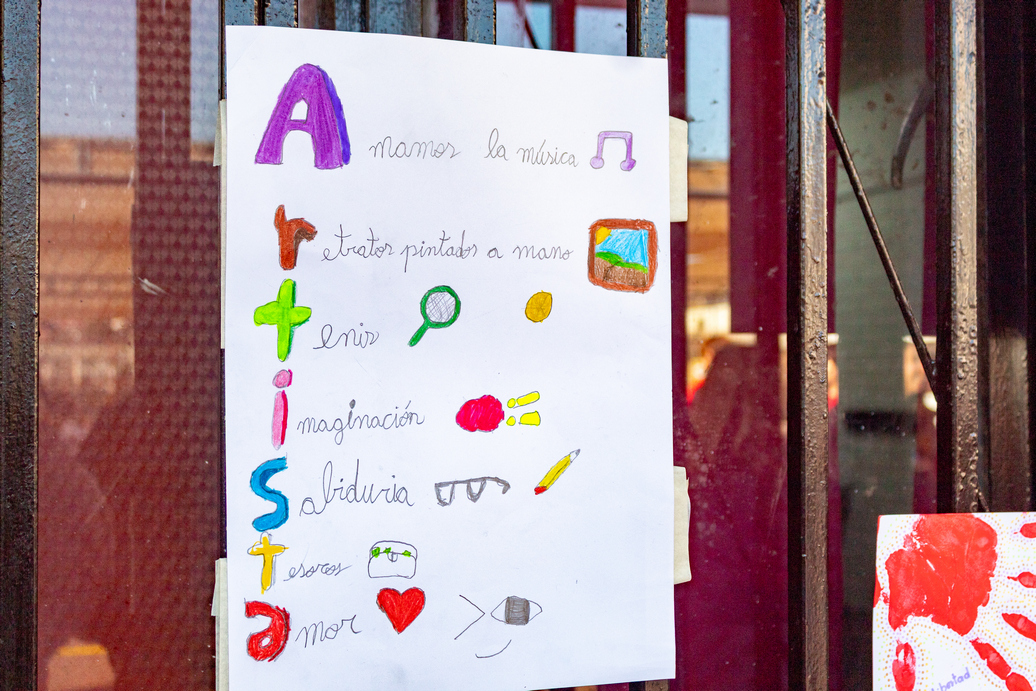 Amamos la música
retratos pintados a mano
tenis
imaginación
sabiduria
tesoros
amor